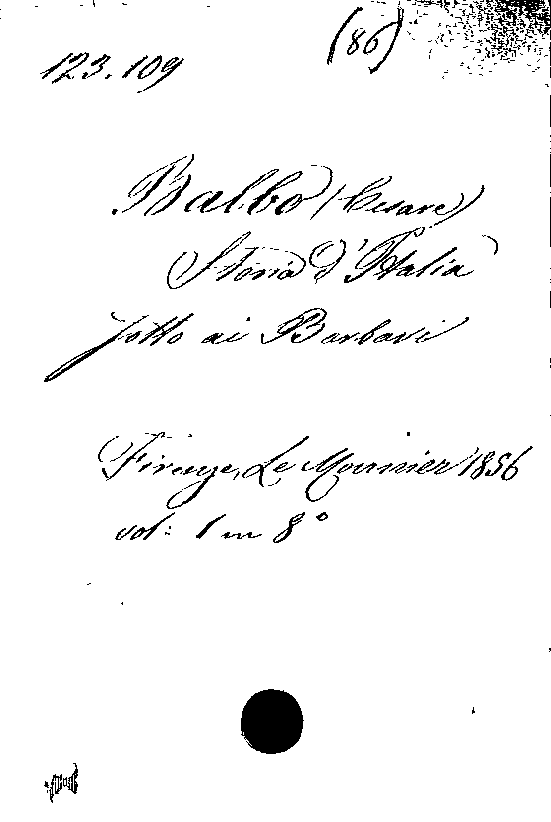 (86)
123.109
Balbo (Cesare)
Storia d'Italia
sotto ai Barbari
Firenze, Le Monnier 1856
vol: 1 in 8°